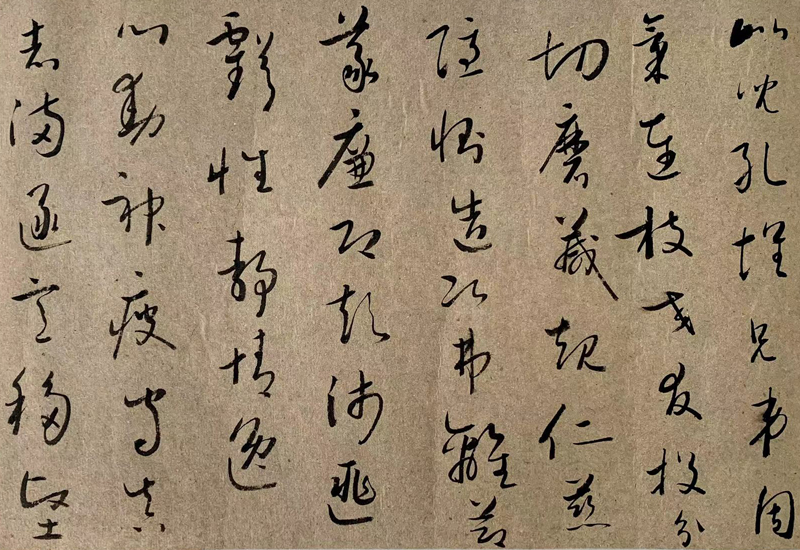 比兒孔懷兄弟同
氣連枝交友投分
切磨箴規仁慈
隱惻造次弗離節
義廉退顛沛匪
虧性靜情逸
心動神疲守真
志滿逐意移堅